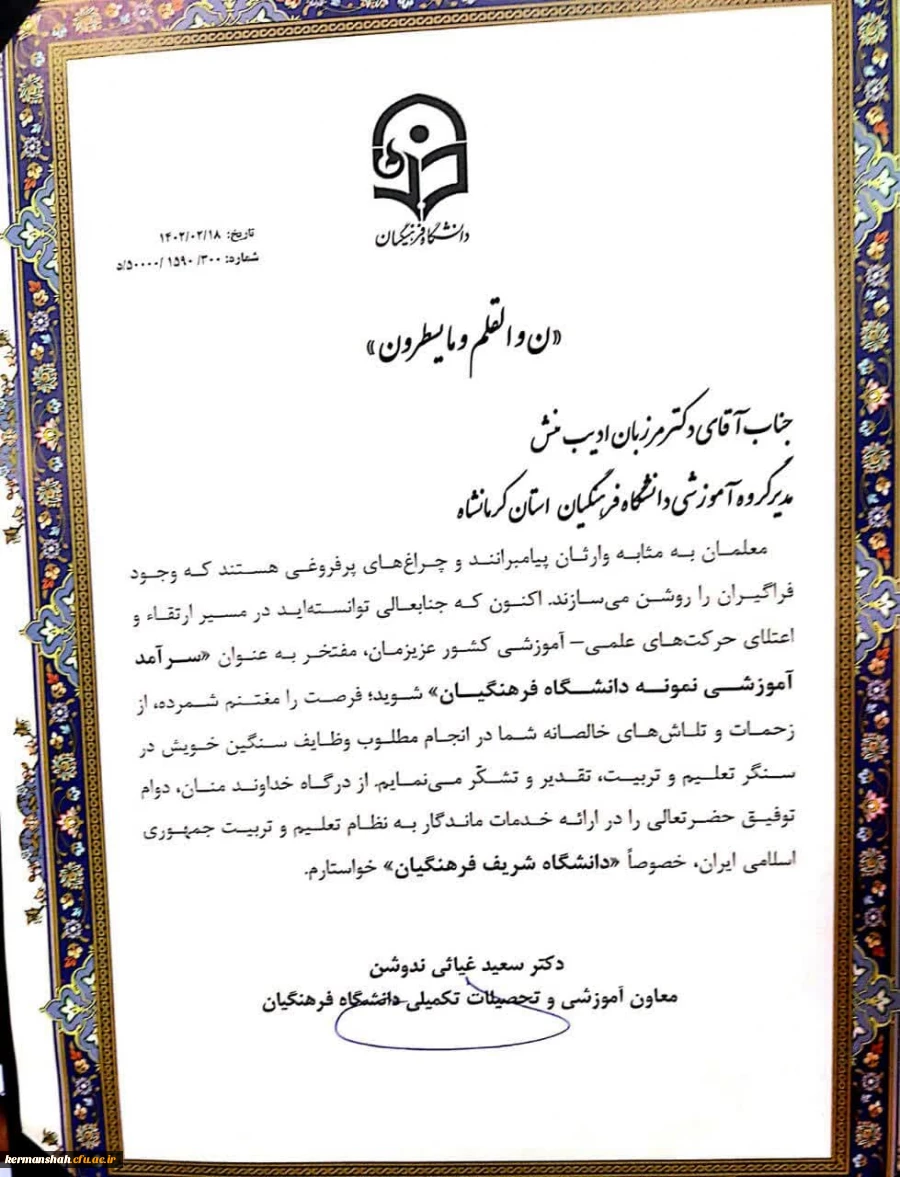 دانشگاه فرهنگیان
تاریخ: ۱۴۰۲/۰۲/۱۸
شماره: ۳۰۰/ ۱۵۹۰ /۵۰۰۰۰/د
«ن و القلم و ما یسطرون»
جناب آقای دکتر مرزبان ادیب منش
مدیر گروه آموزشی دانشگاه فرهنگیان استان کرمانشاه
معلمان به مثابه وارثان پیامبرانند و چراغ‌های پرفروغی هستند که وجود
فراگیران را روشن می‌سازند. اکنون که جنابعالی توانسته‌اید در مسیر ارتقاء و
اعتلای حرکت‌های علمی– آموزشی کشور عزیزمان، مفتخر به عنوان «سرآمد
آموزشی نمونه دانشگاه فرهنگیان» شوید؛ فرصت را مغتنم شمرده، از
زحمات و تلاش‌های خالصانه شما در انجام مطلوب وظایف سنگین خویش در
سنگر تعلیم و تربیت، تقدیر و تشکّر می‌نمایم. از درگاه خداوند منان، دوام
توفیق حضرتعالی را در ارائه خدمات ماندگار به نظام تعلیم و تربیت جمهوری
اسلامی ایران، خصوصاً «دانشگاه شریف فرهنگیان» خواستارم.
دکتر سعید غیاثی ندوشن
معاون آموزشی و تحصیلات تکمیلی دانشگاه فرهنگیان
kermanshah.cfu.ac.ir